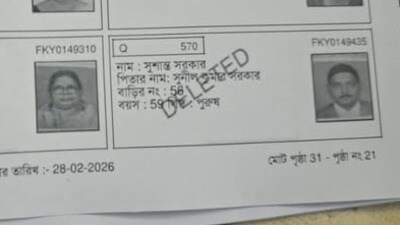 FKY0149310
Q 570
FKY0149435
নাম : সুশান্ত সরকার
পিতার নাম: সুনীল কুমার সরকার
বাড়ির নং : 58
বয়স : 59 লিঙ্গ : পুরুষ
DELETED
র তারিখ :- 28-02-2026
মোট পৃষ্ঠা 31 - পৃষ্ঠা নং 21